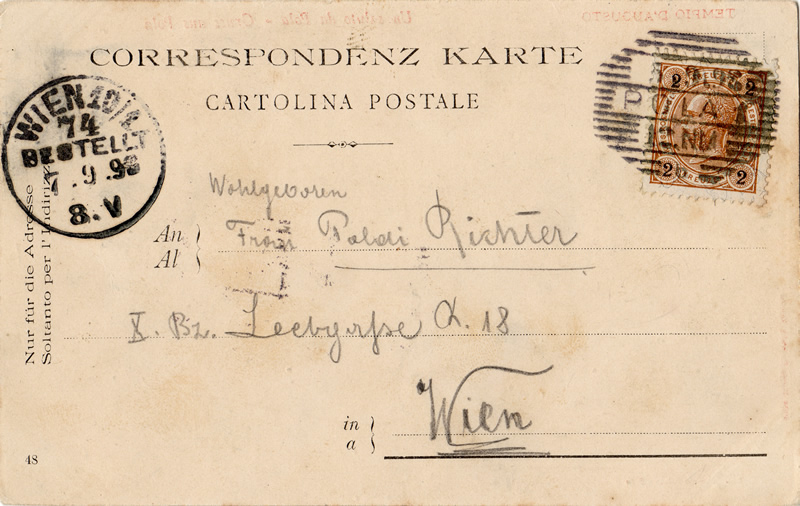 CORRESPONDENZ KARTE
CARTOLINA POSTALE
WIEN 10/1
74
BESTELLT
7.9.98
8.V
2 2
POLA
2 2
Nur für die Adresse
Soltanto per l'Indirizzo
Wohlgeboren
An
Al
Frau Poldi Richter
X. Bz. Leebgasse 18
in
a
Wien
48
TEMPIO D'AUGUSTO
Un saluto da Pola - Gruss aus Pola